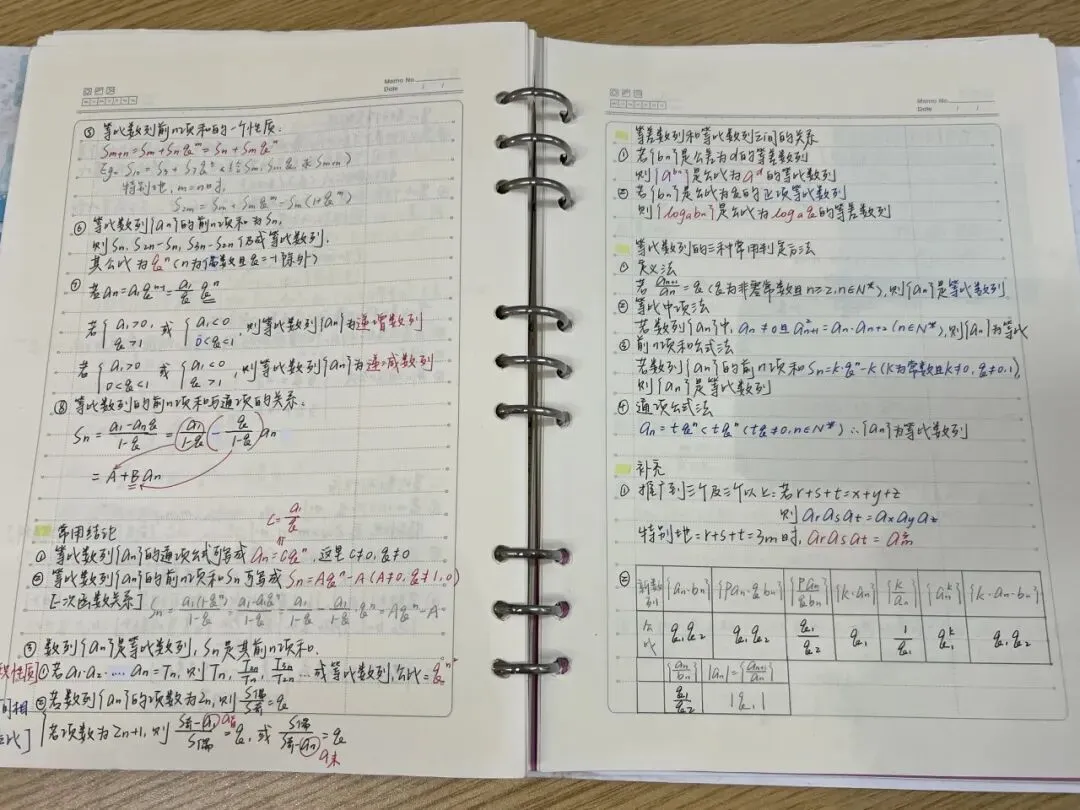 Memo No.
Date / /
⑤ 等比数列前n项和的一个性质:
Sm+n = Sm + Sn qᵐ = Sn + Sm qⁿ
特别地, m=n时,
S2m = Sm + Sm qᵐ = Sm(1+qᵐ)
⑥ 等比数列{an}的前n项和为Sn,
则 Sn, S2n-Sn, S3n-S2n 仍成等比数列,
其公比为qⁿ(n为偶数且q=-1除外)
⑦ 若an=a1qⁿ⁻¹=a1/q qⁿ
若{a1>0, q>1 或 {a1<0 0<q<1, 则等比数列{an}为递增数列
若{a1>0 0<q<1 或 {a1<0 q>1, 则等比数列{an}为递减数列
⑧ 等比数列的前n项和与通项的关系:
Sn = (a1-anq)/(1-q) = (a1/(1-q)) - (q/(1-q)) an
= A+Ban
c=a1/q
常用结论
① 等比数列{an}的通项公式可写成 an=cqⁿ, 这里 c≠0, q≠0
② 等比数列{an}的前n项和Sn可写成 Sn=Aqⁿ-A (A≠0, q≠1,0)
③ 数列{an}是等比数列, Sn是其前n项和.
① 若a1·a2·…·an=Tn, 则 Tn, T2n/Tn, T3n/T2n …成等比数列, 公比=
② 若数列{an}的项数为2n, 则 S偶/S奇=q
若项数为2n+1, 则 (S奇-a1)/S偶=q, 或 S偶/(S奇-an)=q
a首
a末
Memo No.
Date / /
等差数列和等比数列之间的关系
① 若{bn}是公差为d的等差数列
则{aᵇⁿ}是公比为aᵈ的等比数列
② 若{bn}是公比为q的正项等比数列
则{logabn}是公比为logaq的等差数列
等比数列的三种常用判定方法
① 定义法
若 an+1/an=q (q为非零常数且n≥2, n∈N*), 则{an}是等比数列
② 等比中项法
若数列{an}中, an≠0且a²n+1=an·an+2 (n∈N*), 则{an}为等比
③ 前n项和公式法
若数列{an}的前n项和Sn=k·qⁿ-k (k为常数且k≠0, q≠0,1),
则{an}是等比数列
④ 通项公式法
an=tqⁿ<tqⁿ (tq≠0, n∈N*) ∴{an}为等比数列
补充
① 推广到三个及三个以上: 若r+s+t=x+y+z
则 arasat=axayaz
特别地=r+s+t=3m时, arasat=a³m
② 新数列 {an·bn} {pan·qbn} {pan/qbn} {k·an} {k/an} {anᵏ} {k·an·bn}
公比 q1q2 q1q2 q1/q2 q1 1/q1 q1ᵏ q1q2
{an/bn} |an|={an+1/an}
q1/q2 |q1|